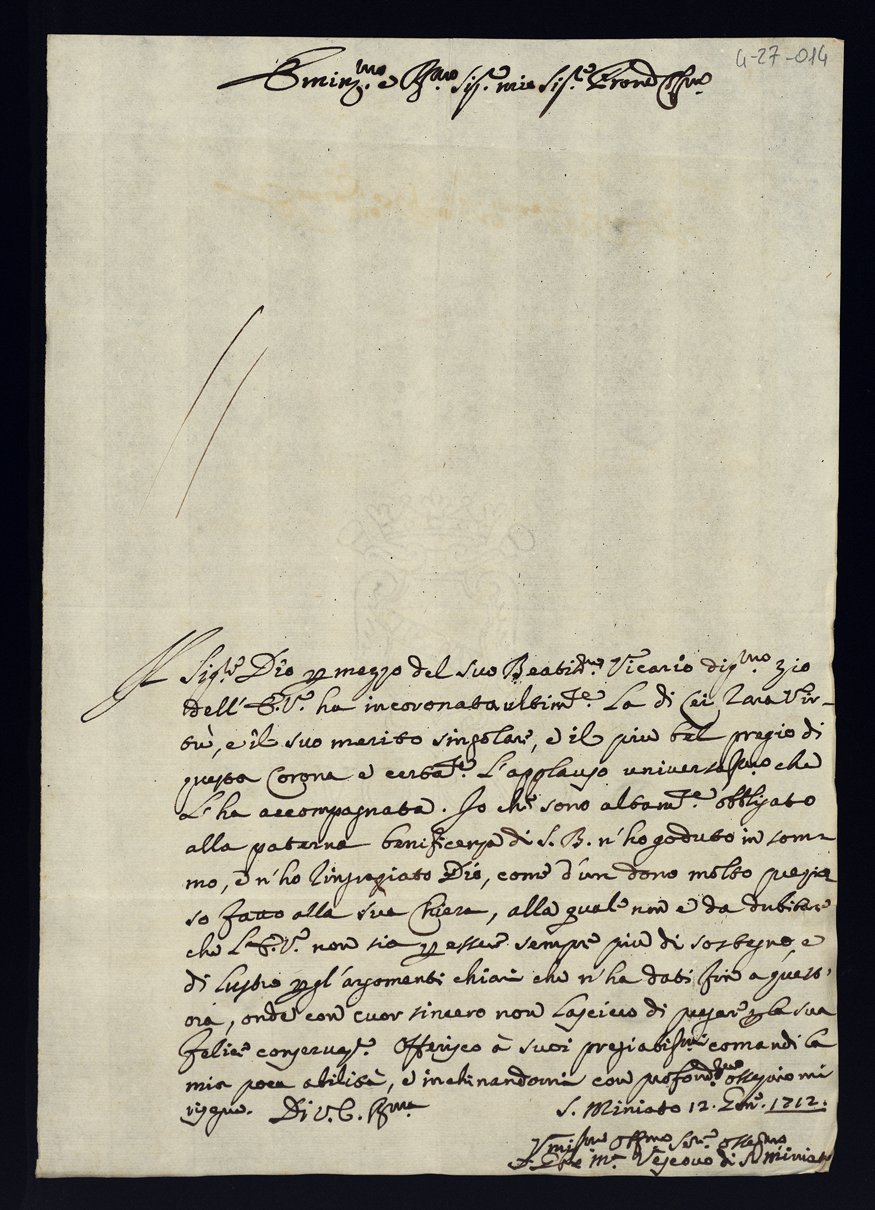 4-27-014
Emin.mo e R.mo Sig.r mio Sig.r e Pron Oss.mo
Il Sig.r Dio p mezzo del suo Beatis.mo Vicario dig.mo zio
dell'E.V. ha incoronata ultim.te La di Lei rara Vir-
tù, e il suo merito singolare, e il più bel pregio di
questa Corona è certam.te L'applauso universaliss.mo che
L'ha accompagnata. Io che sono altam.te obbligato
alla paterna beneficenza di S. B. n'ho goduto in som-
mo, e n'ho ringraziato Dio, come d'un dono molto prezio
so fatto alla sua Chiesa, alla quale non è da dubitare
che L'E.V. non sia p essere sempre più di sostegno, e
di Lustro p gl'argomenti chiari che n'ha dati fin a quest'
ora, onde con cuor sincero non Lascio di pregare p la sua
felice conservaz.e Offerisco à suoi pregiatis.mi comandi la
mia poca abilità, e inchinandomi con profond.mo ossequio mi
rasegno. Di V. E. R.ma S. Miniato 12. Gen. 1712.
Umiliss.mo Obblig.mo Ser.re osseq.mo
Vescovo di S. Miniato